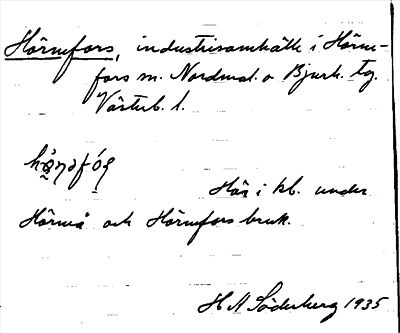 Hörnefors, industrisamhälle i Hörne-
fors sn. Nordmal. o Bjurh. tg.
Västerb. l.
Här i kb. under
Hörneå och Hörnefors bruk.
H A Söderberg 1935